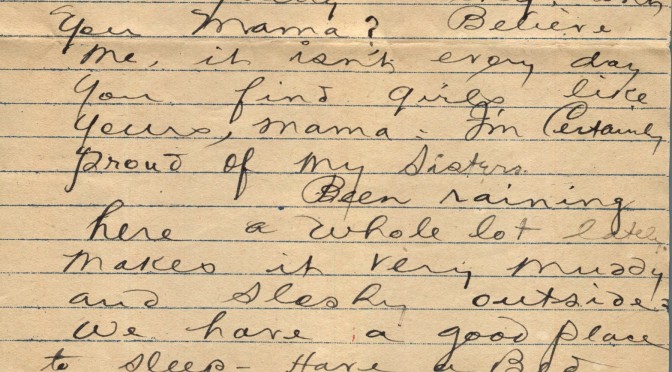 you Mama? Believe
me, it isn't every day
you find girls like
yours, mama - I'm Certainly
proud of my Sisters.
Been raining
here a whole lot lately.
Makes it very muddy
and sloshy outside.
We have a good place
to sleep - Have a Bed